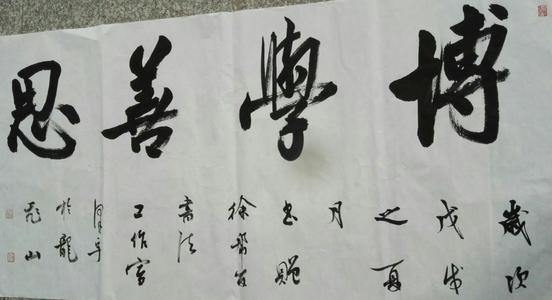 博學善思
歲次
戊戌
之夏
月
書贈
徐
書法
工作室
於龍
山